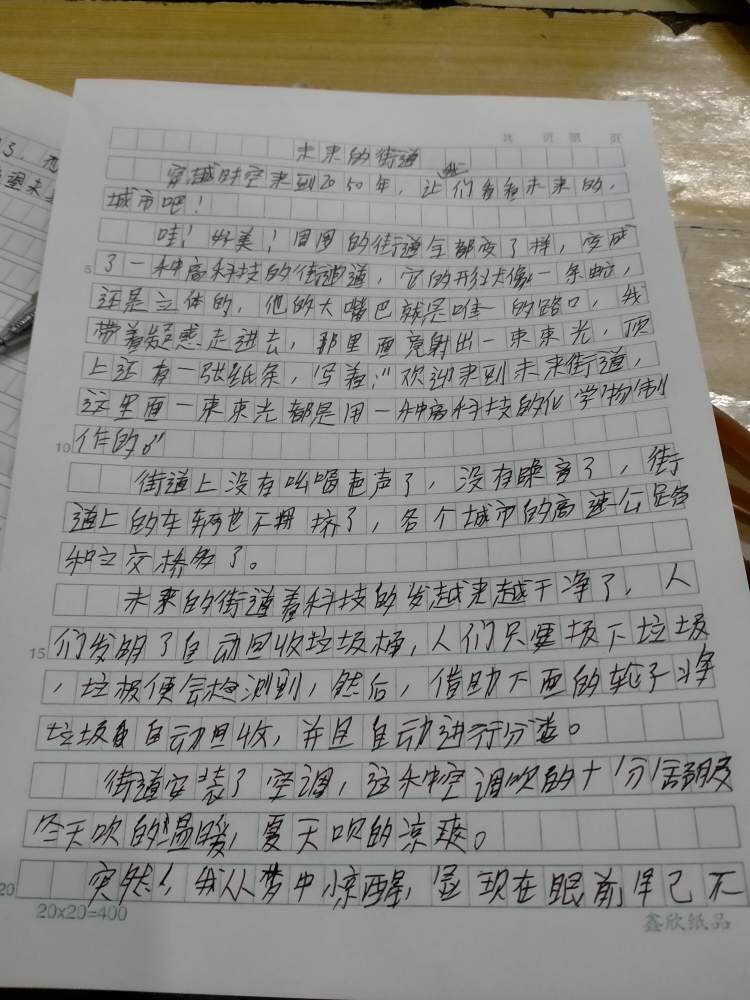 共 页 第 页
未来的街道
穿越时空来到2050年，让们看看未来的，
城市吧！
哇！好美！周围的街道全都变了样，变成
5 了一种高科技的街道，它的形状像一条蛇，
还是立体的，他的大嘴巴就是唯一的路口，我
带着疑惑走进去，那里面竟射出一束束光，顶
上还有一张纸条，写着：“欢迎来到未来街道，
这里面一束束光都是用一种高科技的化学物制
10 作的。”
街道上没有吆喝声了，没有噪音了，街
道上的车辆也不拥挤了，各个城市的高速公路
和立交桥多了。
未来的街道着科技的发越来越干净了，人
15 们发明了自动回收垃圾桶，人们只要扔下垃圾
，垃圾便会检测到，然后，借助下面的轮子将
垃圾自动回收，并且自动进行分类。
街道安装了空调，这种空调吹的十分舒服
冬天吹的温暖，夏天吹的凉爽。
20 突然，我从梦中惊醒，现在眼前早已不
20×20=400
鑫欣纸品